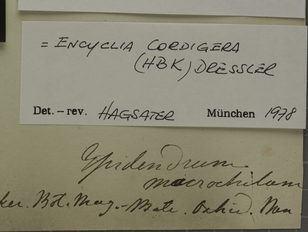 = ENCYCLIA CORDIGERA
(HBK) DRESSLER
Det. – rev. HAGSATER München 1978
Epidendrum
macrochilum
ker. Bot. Mag. - Bate. Orchid.